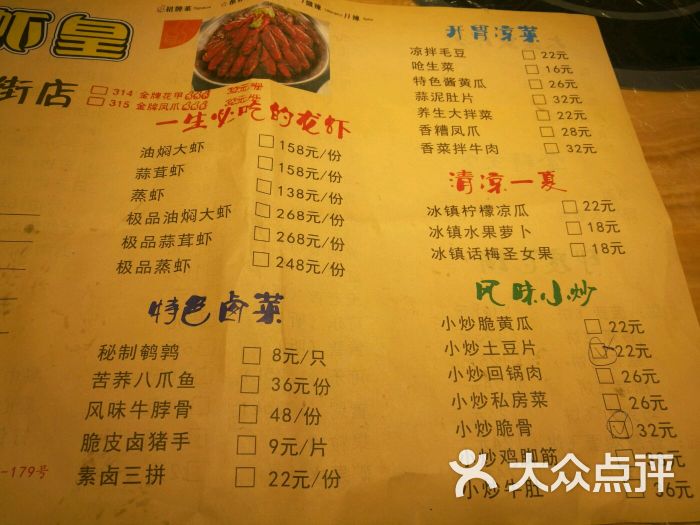 虾皇
街店
招牌菜
314 金牌花甲 32元/份
315 金牌凤爪 32元/份
一生必吃的龙虾
油焖大虾 158元/份
蒜茸虾 158元/份
蒸虾 138元/份
极品油焖大虾 268元/份
极品蒜茸虾 268元/份
极品蒸虾 248元/份
特色卤菜
秘制鹌鹑 8元/只
苦荞八爪鱼 36元份
风味牛脖骨 48/份
脆皮卤猪手 9元/片
素卤三拼 22元/份
-179号
开胃凉菜
凉拌毛豆 22元
呛生菜 16元
特色酱黄瓜 26元
蒜泥肚片 32元
养生大拌菜 22元
香糟凤爪 28元
香菜拌牛肉 32元
清凉一夏
冰镇柠檬凉瓜 22元
冰镇水果萝卜 18元
冰镇话梅圣女果 18元
风味小炒
小炒脆黄瓜 22元
小炒土豆片 22元
小炒回锅肉 26元
小炒私房菜 26元
小炒脆骨 32元
小炒鸡脚筋
小炒牛肚 36元
大众点评